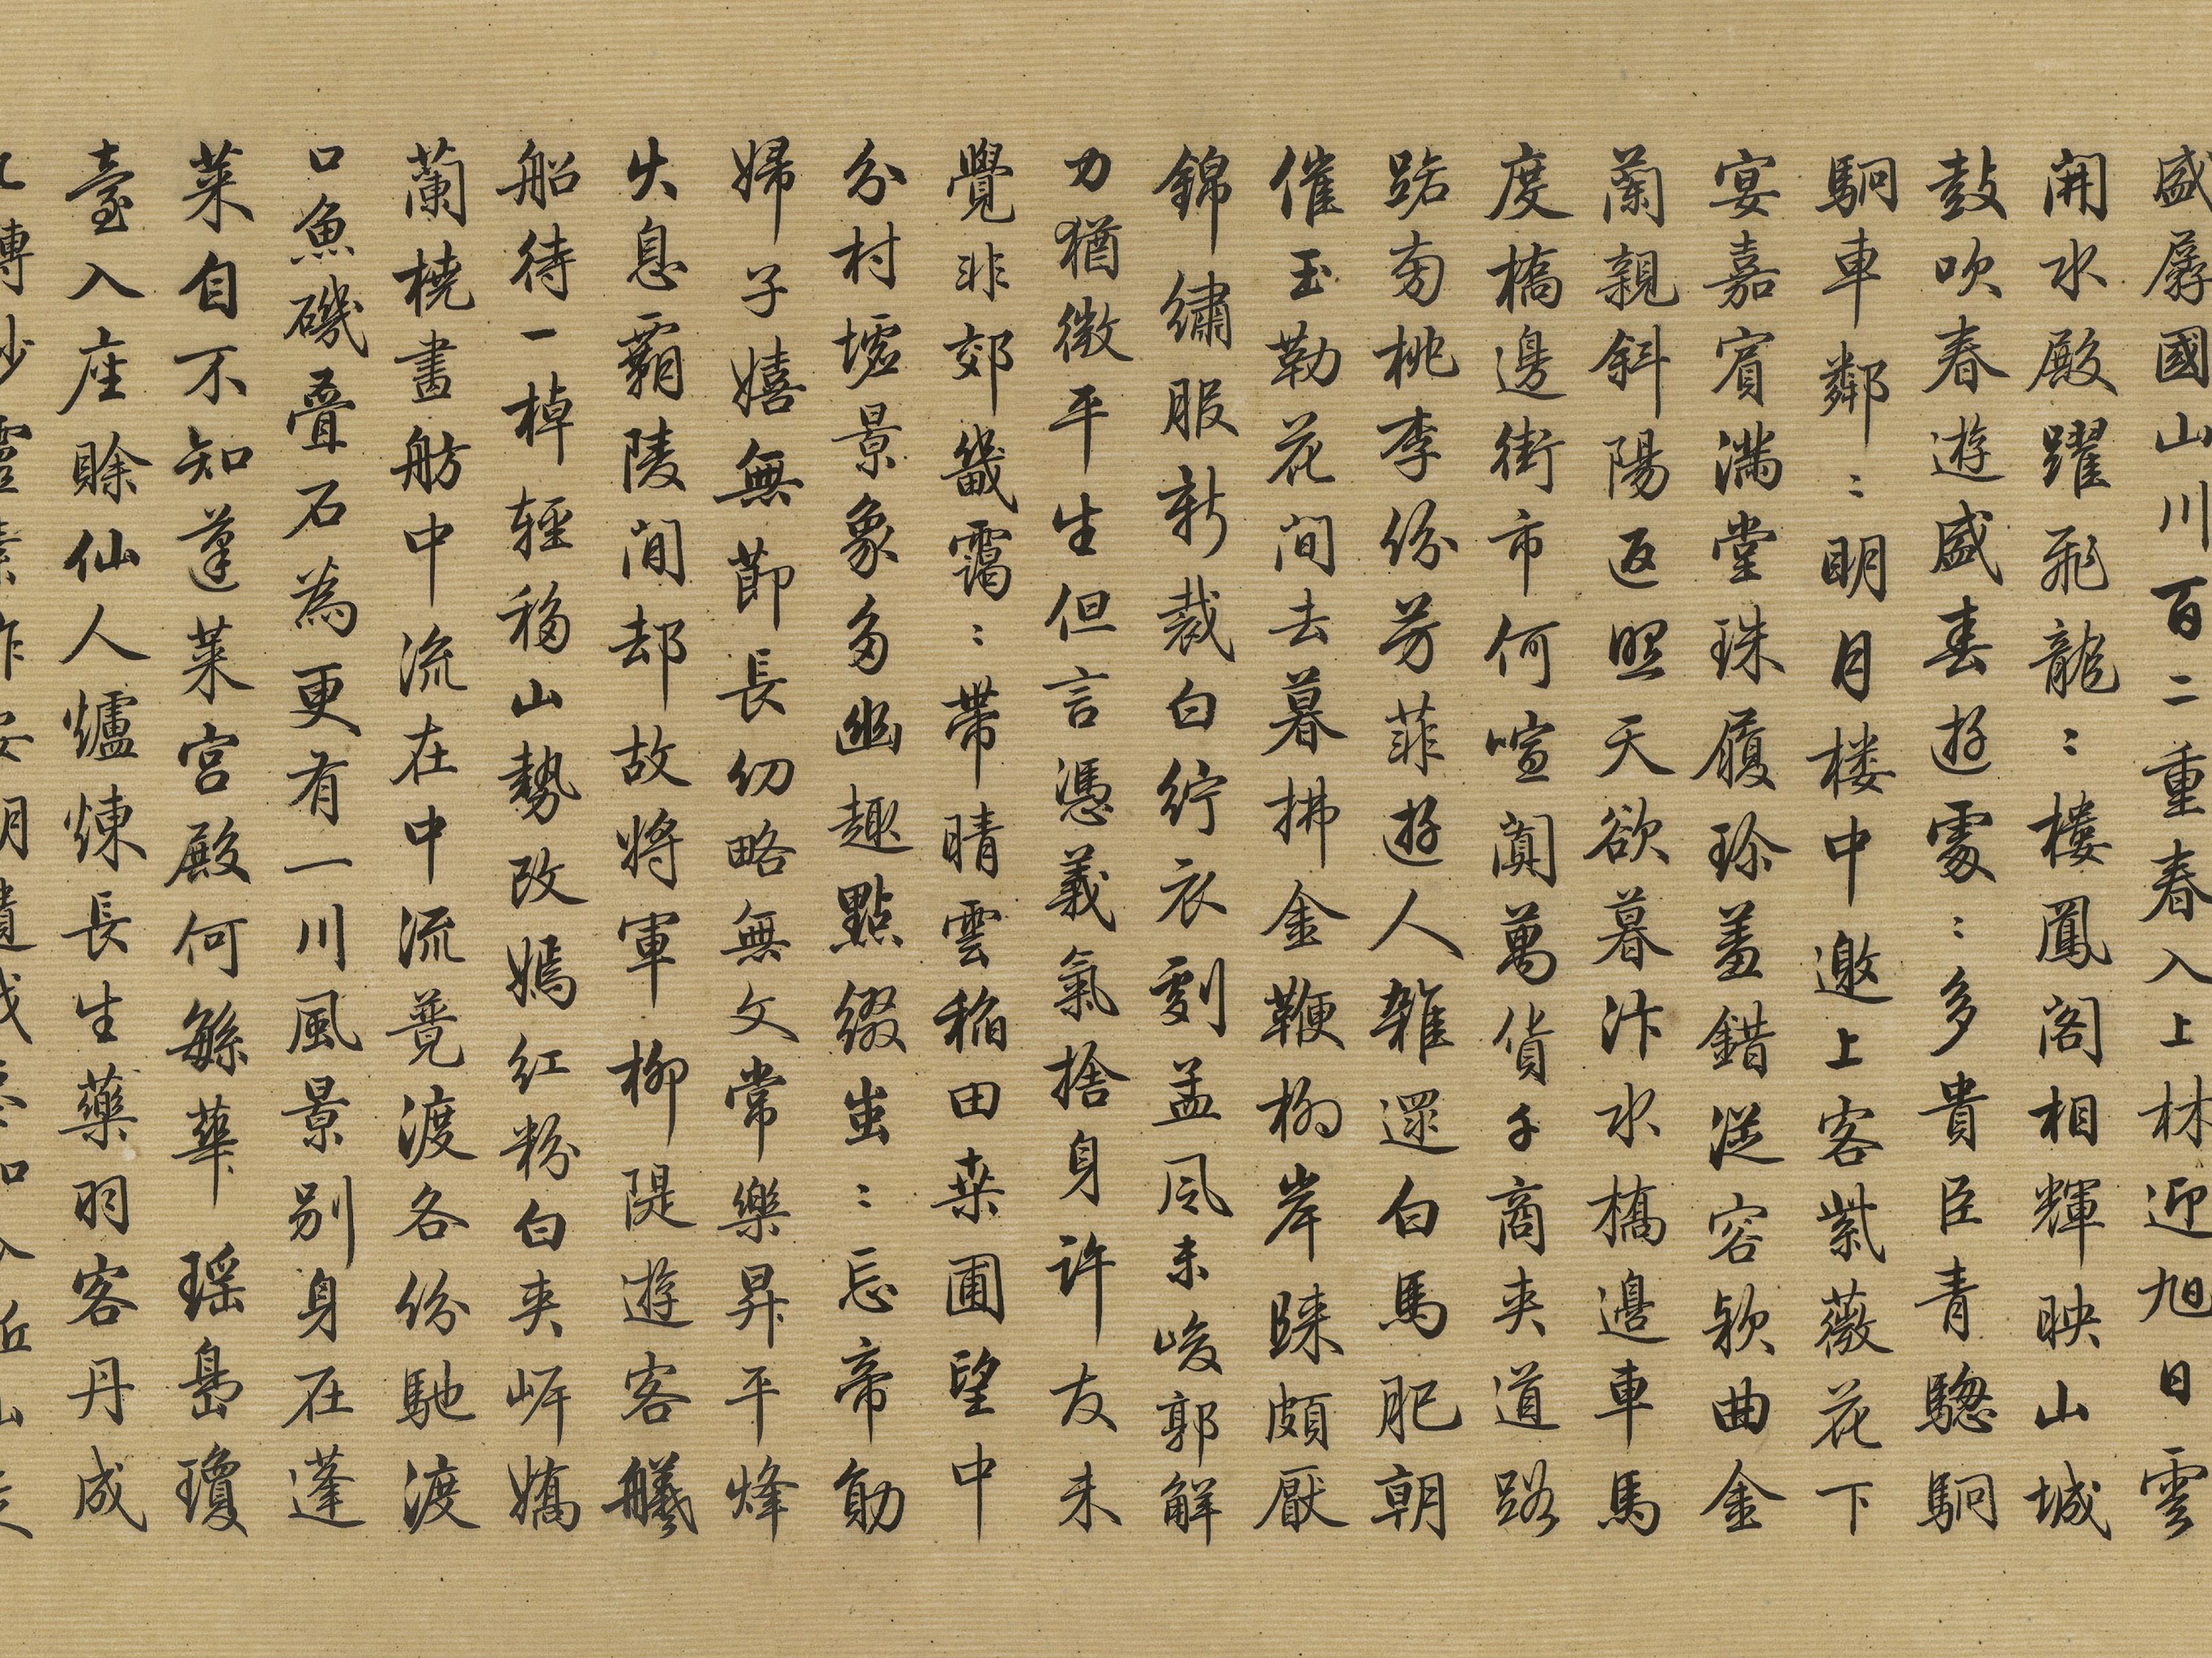 盛孱國山川百二重春入上林迎旭日雲
開水殿躍飛龍〻樓鳳閣相輝映山城
鼓吹春遊盛春遊處〻多貴臣青驄駟
駟車鄰〻明月楼中邀上客紫薇花下
宴嘉賓滿堂珠履珍羞錯從容欵曲金
蘭親斜陽返照天欲暮汴水橋邊車馬
度橋邊街市何喧闐萬貨千商夾道路
路旁桃李份芳菲遊人雜還白馬肥朝
催玉勒花间去暮拂金鞭柳岸歸頗厭
錦繡服新裁白紵衣劉孟風未峻郭解
力猶微平生但言憑義氣捨身許友未
覺非郊畿靄〻帶晴雲稲田桒圃望中
分村墟景象多幽趣點缀蚩〻忘帝勛
婦子嬉無莭長幼略無文常樂昇平烽
火息霸陵间却故將軍柳隄遊客艤
船待一棹輕移山勢改嫣红粉白夹岸嬌
蘭橈畫舫中流在中流竟渡各份馳渡
口魚磯叠石為更有一川風景别身在蓬
莱自不知蓬莱宫殿何繇華瑶島瓊
臺入座賒仙人爐煉長生藥羽客丹成